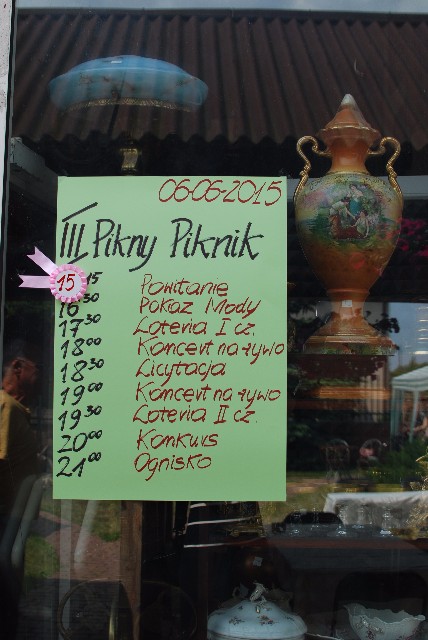 06-06-2015
III Pikny Piknik
15 15 Powitanie
16 30 Pokaz Mody
17 30 Loteria I cz.
18 00 Koncert na żywo
18 30 Licytacja
19 00 Koncert na żywo
19 30 Loteria II cz.
20 00 Konkurs
21 00 Ognisko